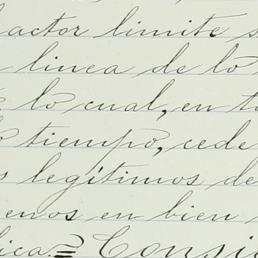 actor limite s
linea de lo
lo cual, en t
tiempo, cede
s legítimos de
enos en bien
lica.= Consi